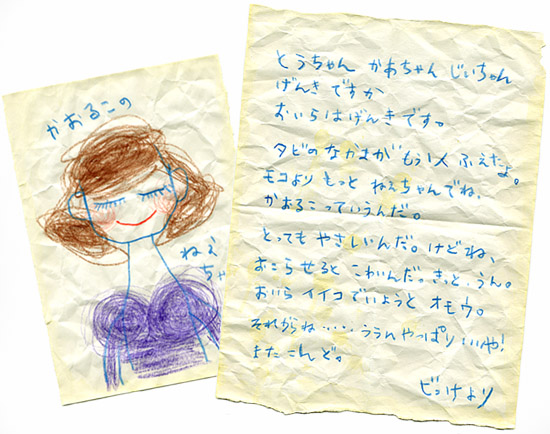 かおるこの
ねえ
ちゃ
とうちゃん かあちゃん じいちゃん
げんきですか
おいらはげんきです。
タビのなかまが もう1人 ふえたよ。
モコより もっと ねぇちゃんでね、
かおるこっていうんだ。
とっても やさしいんだ。けどね、
おこらせると こわいんだっ きっと、うん。
おいら イイコでいようと オモウ。
それからね‥‥ううんやっぱりいいや!
またこんど。
ビッけより